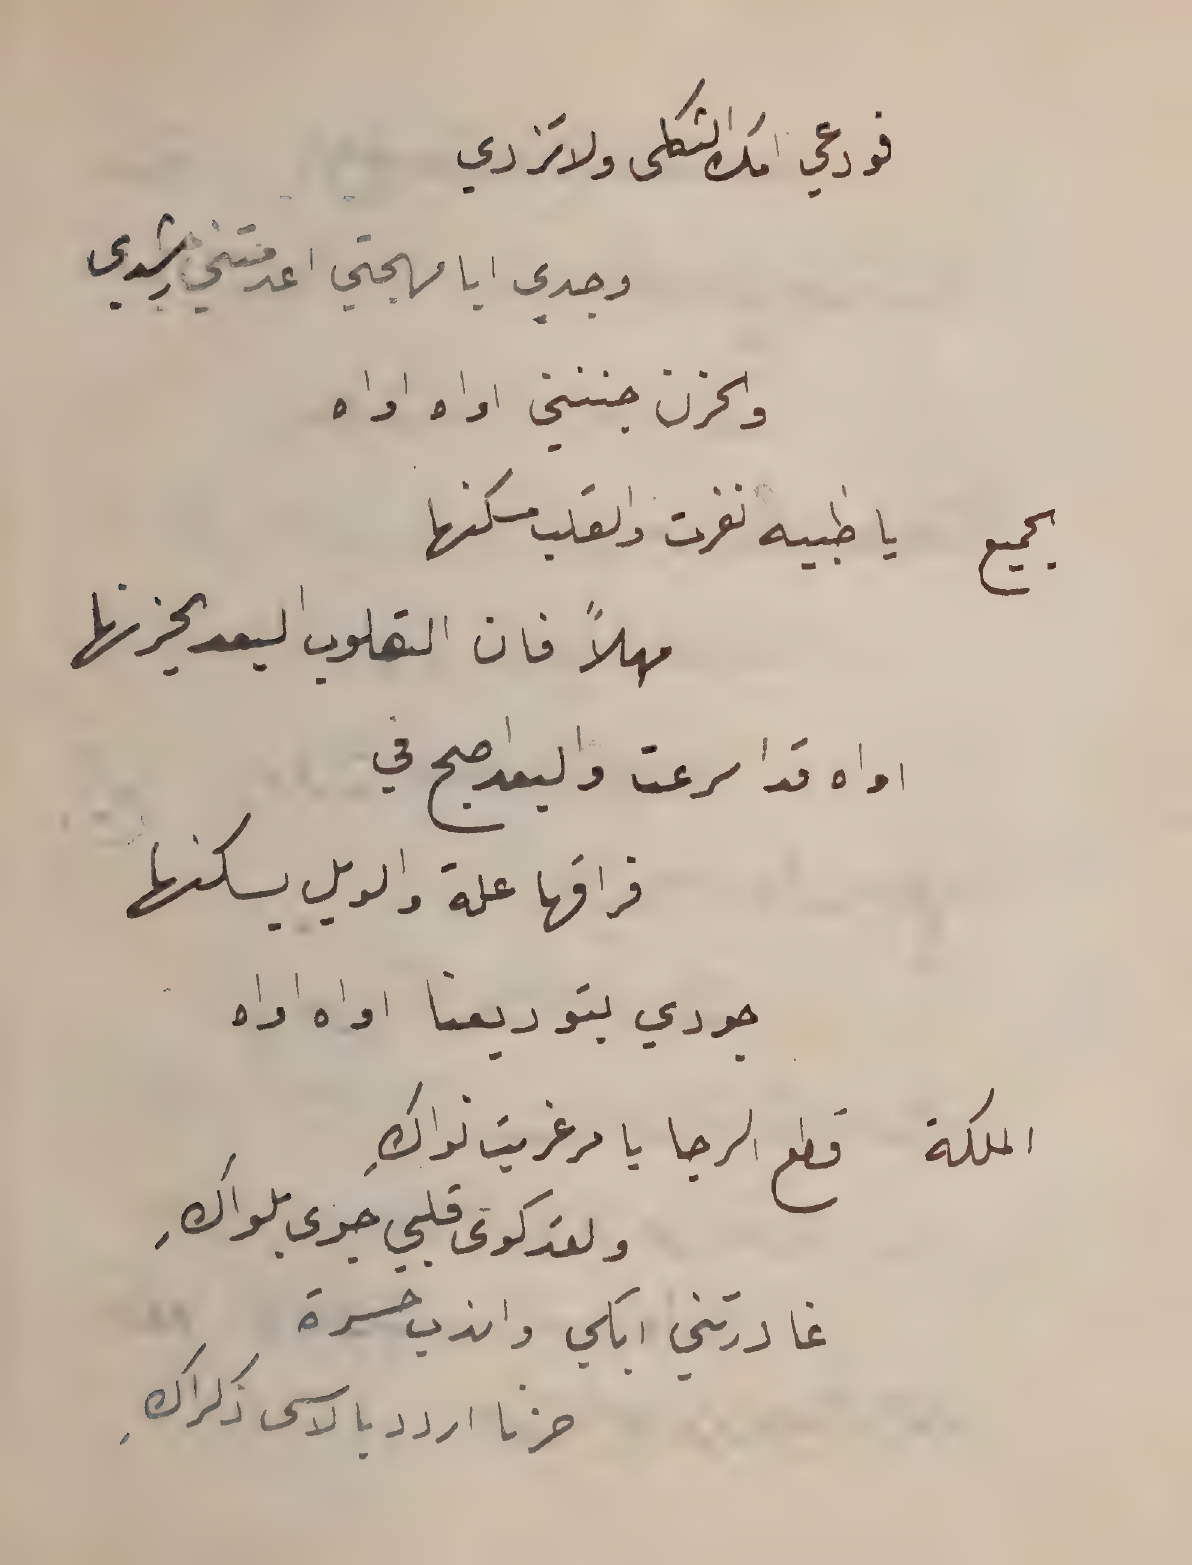 فودعي امك الثكلى ولا تزدي
وجدي ايا مهجتي اعدمتني رشدي
والحزن جننني اواه اواه
الجميع يا ظبيه نفرت والقلب مسكنها
مهلاً فان القلوب البعد يحزنها
اواه قد اسرعت والبعد اصبح في
فراقها علة والويل يسكنها
جودي بتوديعنا اواه اواه
الملكة قطع الرجا يا مرغريت نواكِ
ولقد كوى قلبي جوى بلواكِ
غادرتني ابكي واندب حسرة
حزنا اردد بالاسى ذكراكِ